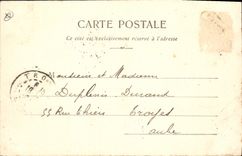 CARTE POSTALE
Ce côté est exclusivement réservé à l'adresse
TRO
Monsieur et Madame
Duplenis Durand
55 Rue Thiers Troyes
Aube